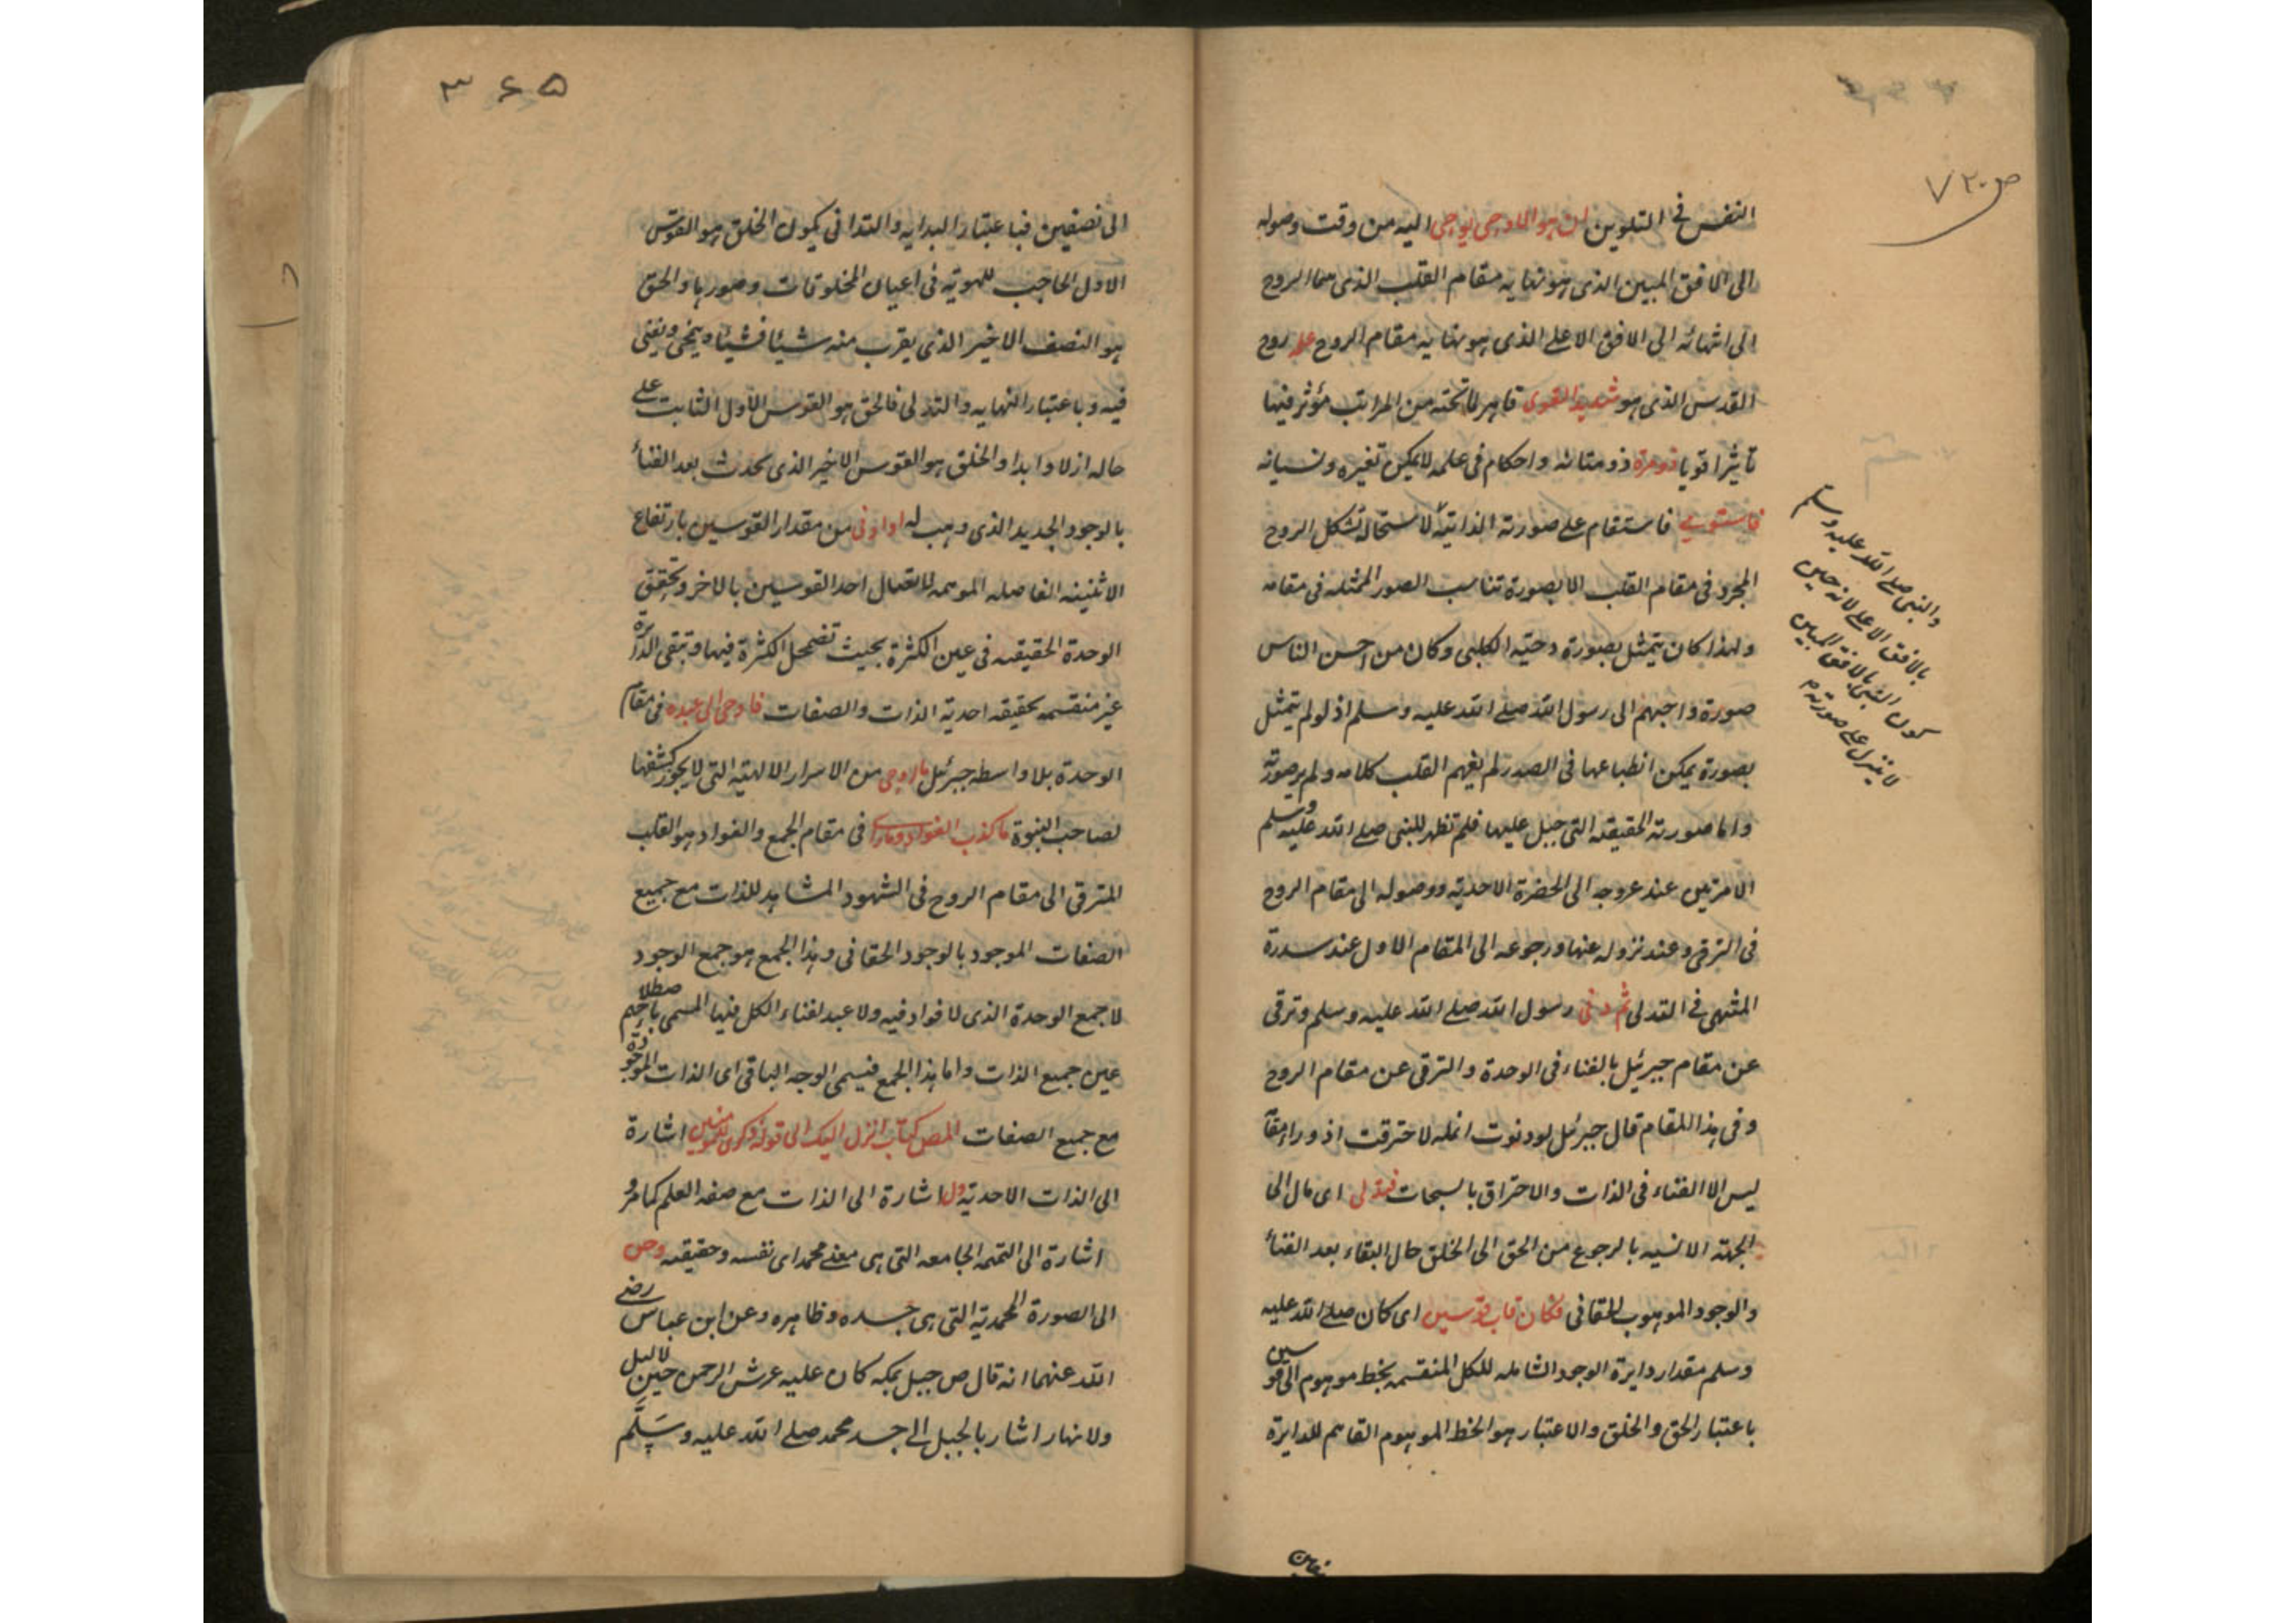 ص ٧٢٠
النفس فى التلوين ان هو الا وحى يوحى اليه من وقت وصوله
الى الافق المبين الذى هو نهايه مقام القلب الذى سما الروح
الى انتهائه الى الافق الاعلے الذى هو نهايه مقام الروح علمه روح
القدس الذى هو شديد القوى قاهر لما تحته من المراتب مؤثر فيها
تأثيرا قويا ذو مرة ذو متانه واحكام فى علمه لا يمكن تغيره ونسيانه
فاستوى فاستقام علے صورته الذاتية لاستحالة تشكل الروح
المجرد فى مقام القلب الا بصورة تناسب الصور المتمثله فى مقامه
ولهذا كان يتمثل بصورة دحيه الكلبى وكان من احسن الناس
صورة واحبهم الى رسول الله صلے الله عليه وسلم اذ لو لم يتمثل
بصورة يمكن انطباعها فى الصدر لم يفهم القلب كلامه ولم ير صورته
واما صورته الحقيقه التى جبل عليها فلم تظهر للنبى صلے الله عليه وسلم
الا مرتين عند عروجه الى الحضرة الاحديه ووصوله الى مقام الروح
فى الترقى وعند نزوله عنها ورجوعه الى المقام الاول عند سدرة
المنتهى فى التدلى ثم دنى رسول الله صلے الله عليه وسلم وترقى
عن مقام جبرئيل بالفناء فى الوحدة والترقى عن مقام الروح
وفى هذا المقام قال جبرئيل لو دنوت انمله لاحترقت اذ وراء مقامه
ليس الا الفناء فى الذات والاحتراق بالسبحات فتدلى اى مال الى
الجهته الانسيه بالرجوع من الحق الى الخلق حال البقاء بعد الفناء
والوجود الموهوب الحقانى فكان قاب قوسين اى كان صلے الله عليه
وسلم مقدار دايرة الوجود الشامله للكل المنقسمه بخط موهوم الى قوسين
باعتبار الحق والخلق والاعتبار هو الخط الموهوم القاسم للدايرة
والنبى صلے الله عليه وسلم
بالافق الاعلے لانه حين
كون النبى بالافق المبين
لا ينزل علے صورته
٣٦٥
الى نصفين فباعتبار البدايه والتدانى يكون الخلق هو القوس
الاول الحاجب للهويه فى اعيان المخلوقات وصورها والحق
هو النصف الاخير الذى يقرب منه شيئا فشيئا ويمحى ويفنى
فيه وباعتبار النهايه والتدلى فالحق هو القوس الاول الثابت علے
حاله ازلا وابدا والخلق هو القوس الاخير الذى يحدث بعد الفناء
بالوجود الجديد الذى وهب له او ادنى من مقدار القوسين بارتفاع
الاثنينيه الفاصله الموهمه لاتصال احد القوسين بالاخر وتحقق
الوحدة الحقيقه فى عين الكثرة بحيث تضمحل الكثرة فيها وتبقى الدايرة
غير منقسمه بحقيقه احدية الذات والصفات فاوحى الى عبده فى مقام
الوحدة بلا واسطه جبرئيل ما اوحى من الاسرار الالهيه التى لا يجوز كشفها
لصاحب النبوة ما كذب الفواد وما راى فى مقام الجمع والفواد هو القلب
المترقى الى مقام الروح فى الشهود المشاهد للذات مع جميع
الصفات الموجود بالوجود الحقانى وهذا الجمع هو جمع الوجود
لا جمع الوحدة الذى لا فواد فيه ولا عبد لفناء الكل فيها المسمى باصطلاحهم
عين جميع الذات واما هذا الجمع فيسمى الوجه الباقى اى الذات الموجودة
مع جميع الصفات المص كتاب انزل اليك الى قوله وذكرى للمؤمنين اشارة
الى الذات الاحديه ول اشارة الى الذات مع صفه العلم كما مر و
اشارة الى التتمه الجامعه التى هى معنے محمد اى نفسه وحقيقه وص
الى الصورة المحمديه التى هى جسده وظاهره وعن ابن عباس رضے
الله عنهما انه قال ص جبل بمكه كان عليه عرش الرحمن حين لا ليل
ولا نهار اشار بالجبل الے جسد محمد صلے الله عليه وسلم